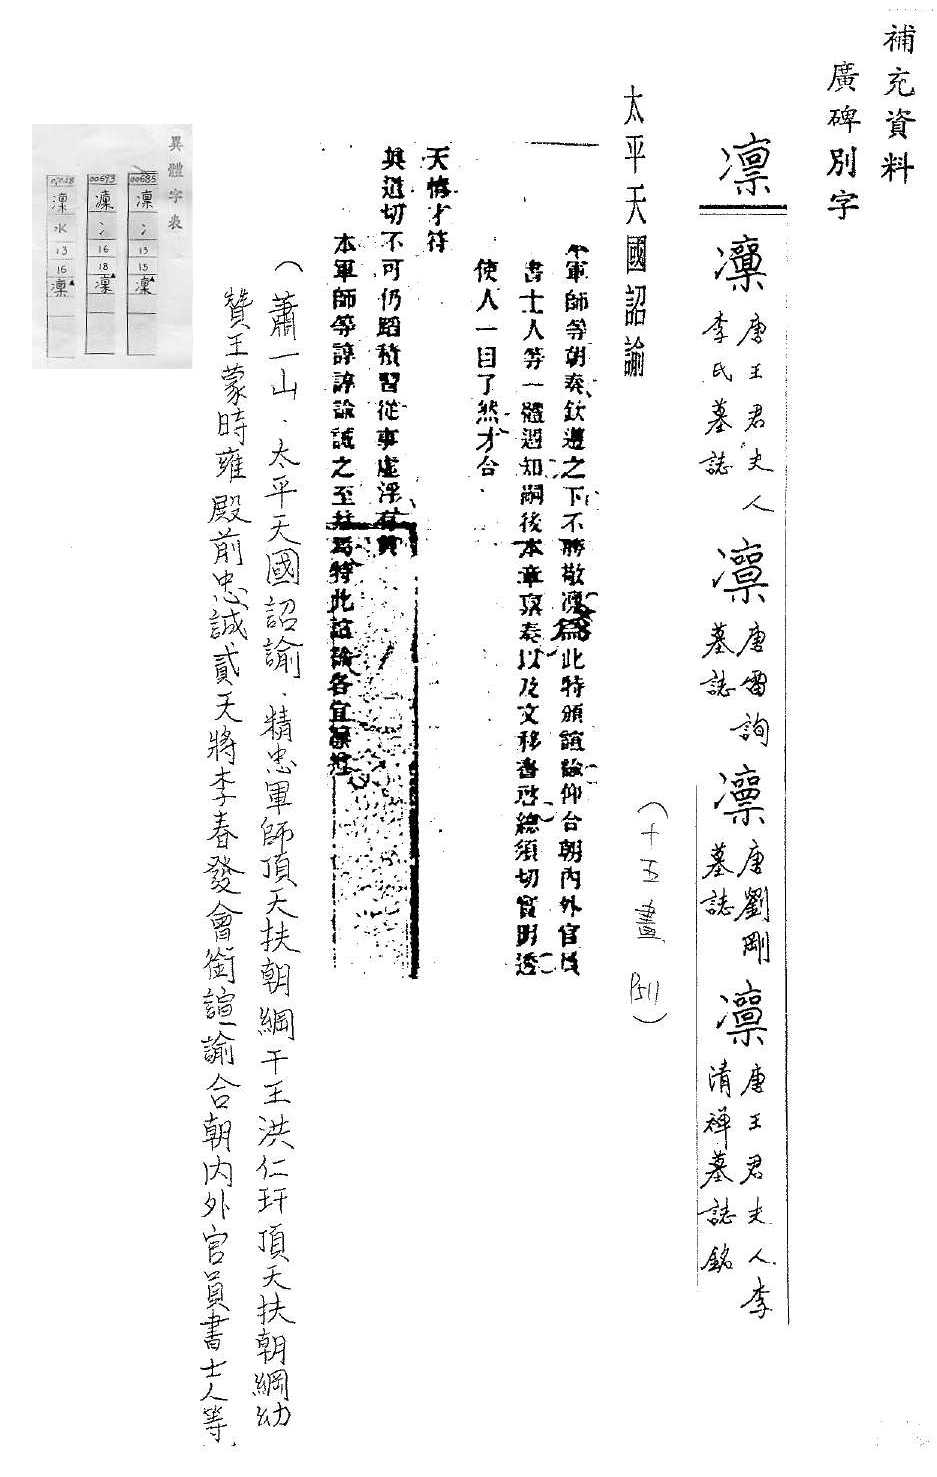 補充資料
廣碑別字
凛
凛 唐王君夫人李氏墓誌
凛 唐雷詢墓誌
凛 唐劉剛墓誌
凛 唐王君夫人李清禪墓誌銘
(十五畫 P511)
太平天國詔諭
本軍師等朝奏欽遵之下不勝敬凛為此特頒諠諭仰合朝內外官員
書士人等一體週知嗣後本章稟奏以及文移書啓總須切實明透
使人一目了然才合
天情才符
真道切不可仍蹈積習從事虛浮有負
本軍師等諄諄諭誡之至意焉特此諠諭各宜凛遵
(蕭一山.太平天國詔諭.精忠軍師頂天扶朝綱干王洪仁玕頂天扶朝綱幼
贊王蒙時雍殿前忠誠貳天將李春發會銜諠諭合朝內外官員書士人等
異體字表
00685 凛 冫 13 15 凛
00693 凜 冫 16 18 凛
水 13 16 凛